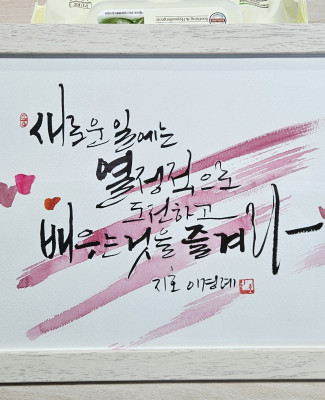 새로운 일에는
열정적으로
도전하고
배우는 것을 즐겨라
지호 이경예